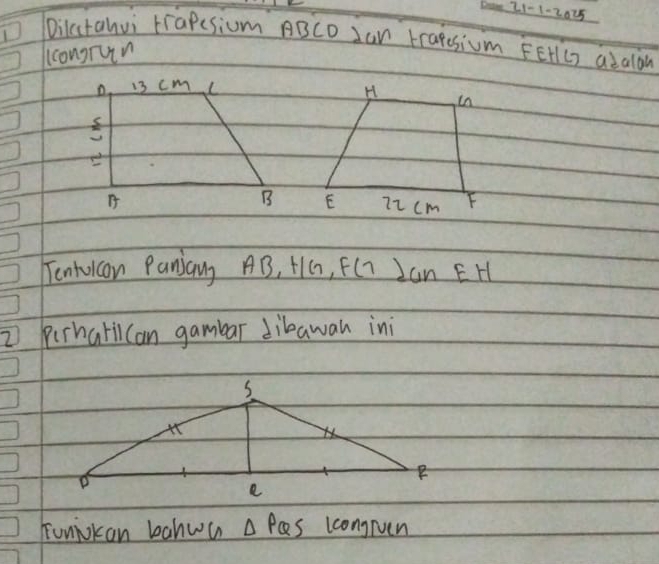 21-1-2025
1 Diketahui trapesium ABCD dan trapesium FEHG adalah
kongruen
D 13 cm C H G
12 cm
A B E 22 cm F
Tentukan Panjang AB, HG, FG dan EH
2 Perhatikan gambar dibawah ini
S
P Q R
Tunjukan bahwa Δ PQS kongruen